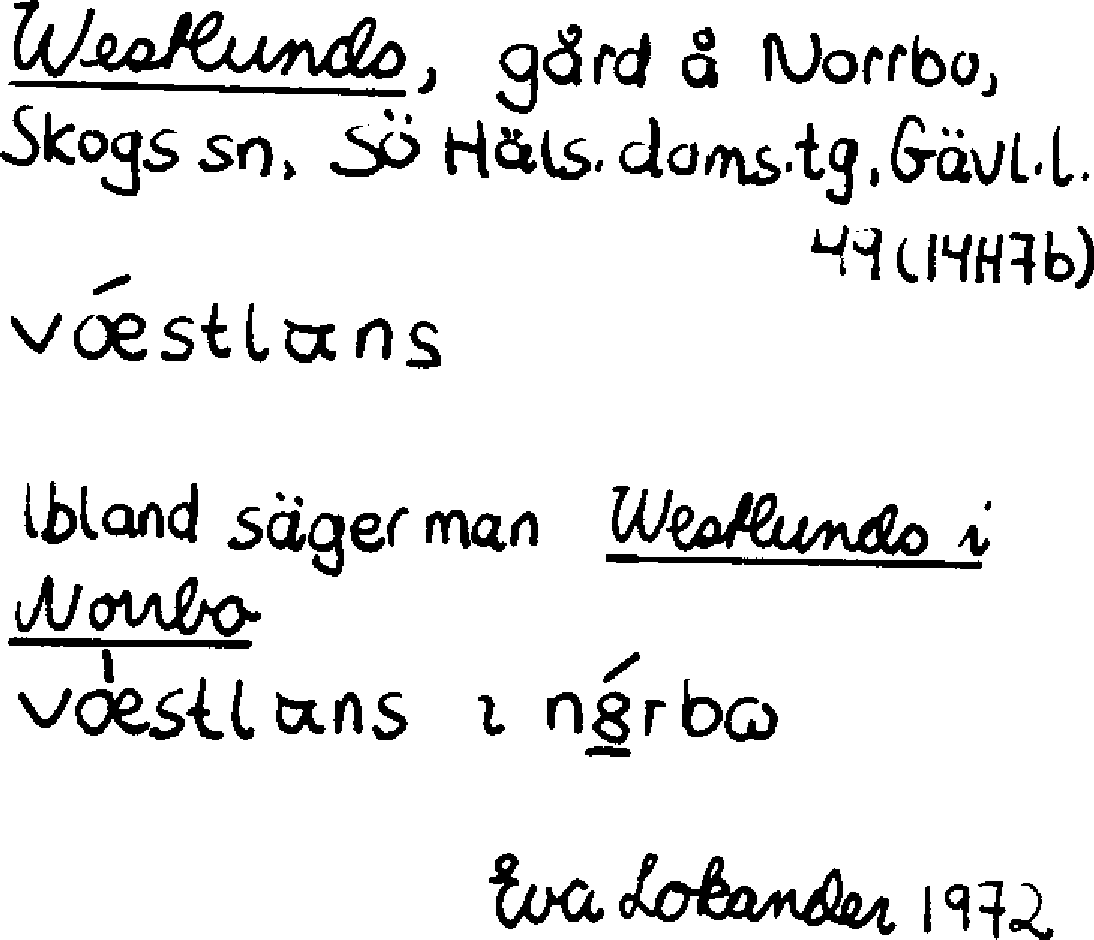 Westlunds, gård å Norrbo,
Skogs sn, Sö Häls. doms.tg, Gävl.l.
49 (14H7b)
vǽstlαns
Ibland säger man Westlunds i
Norrbo
væ̍stlαns ɩ n8́rbω
Eva Lokander 1972